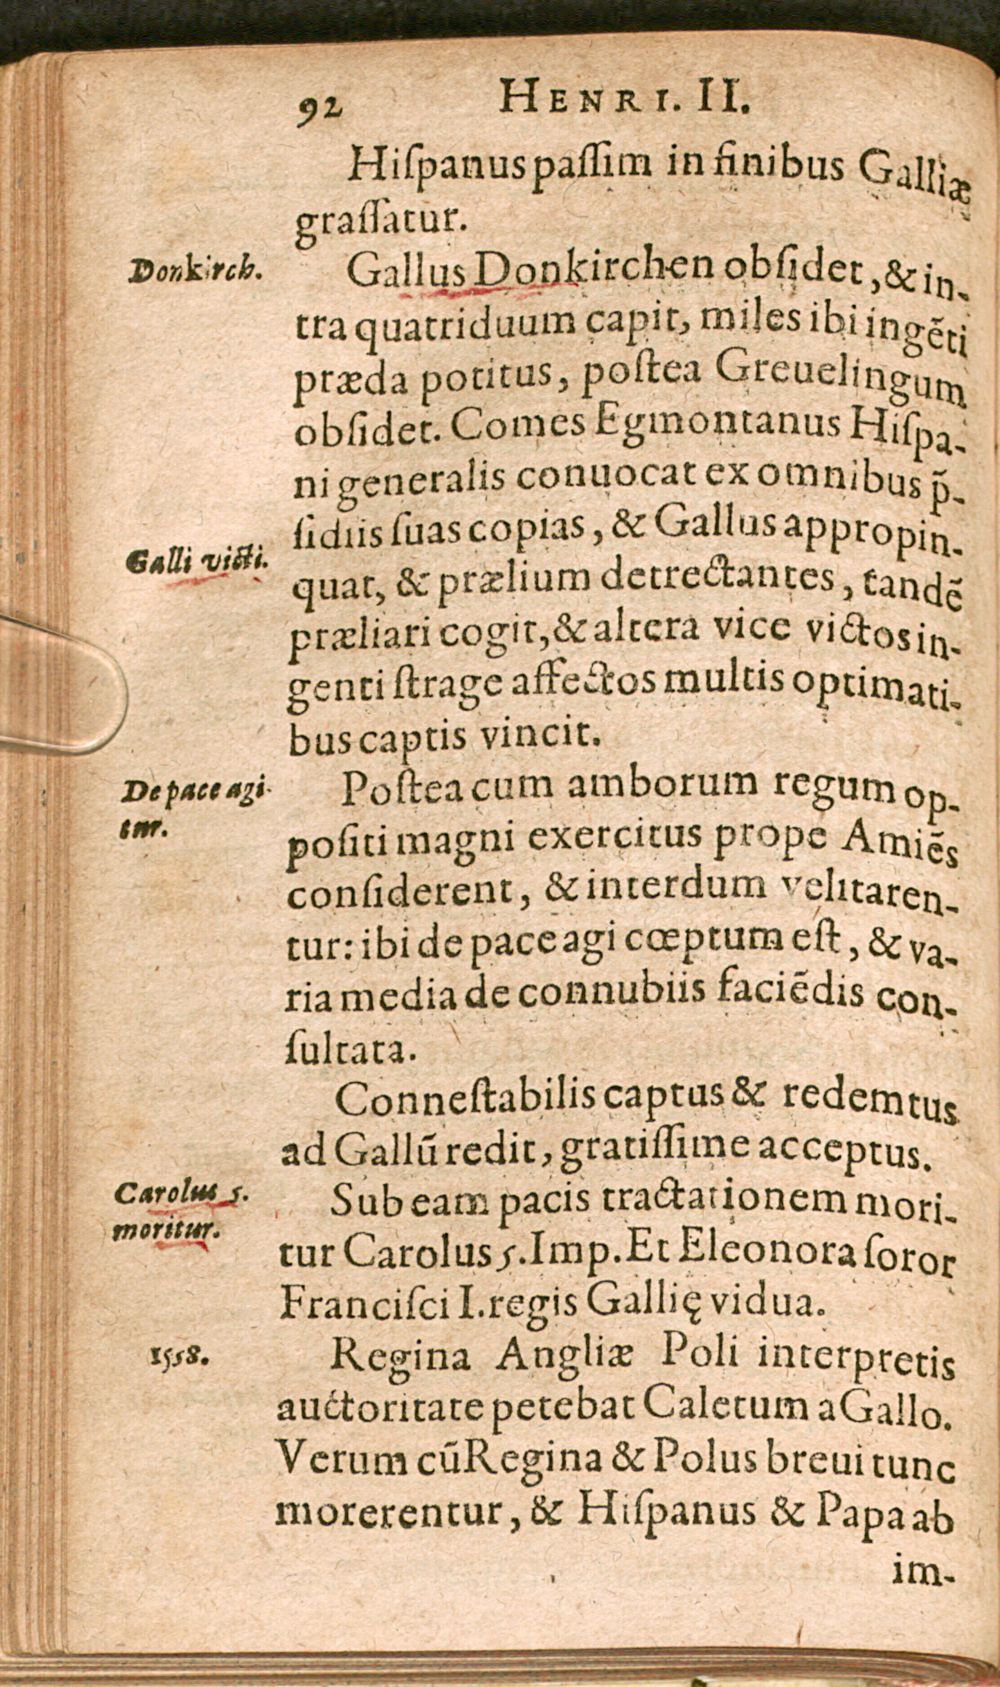 92 HENRI. II.
Hiſpanus paſſim in finibus Galliæ
graſſatur.
Donkirch.
Gallus Donkirchen obſidet, & in-
tra quatriduum capit, miles ibi ingẽti
præda potitus, poſtea Greuelingum
obſidet. Comes Egmontanus Hiſpa-
ni generalis conuocat ex omnibus p̃-
ſidiis ſuas copias, & Gallus appropin-
Galli victi.
quat, & prælium detrectantes, tandẽ
præliari cogit, & altera vice victos in-
genti ſtrage affectos multis optimati-
bus captis vincit.
De pace agi-
tur.
Poſtea cum amborum regum op-
poſiti magni exercitus prope Amiẽs
conſiderent, & interdum velitaren-
tur: ibi de pace agi cœptum eſt, & va-
ria media de connubiis faciẽdis con-
ſultata.
Conneſtabilis captus & redemtus
ad Gallũ redit, gratiſſime acceptus.
Carolus 5.
moritur.
Sub eam pacis tractationem mori-
tur Carolus 5. Imp. Et Eleonora ſoror
Franciſci I. regis Gallię vidua.
1558.
Regina Angliæ Poli interpretis
auctoritate petebat Caletum a Gallo.
Verum cũ Regina & Polus breui tunc
morerentur, & Hiſpanus & Papa ab
im-